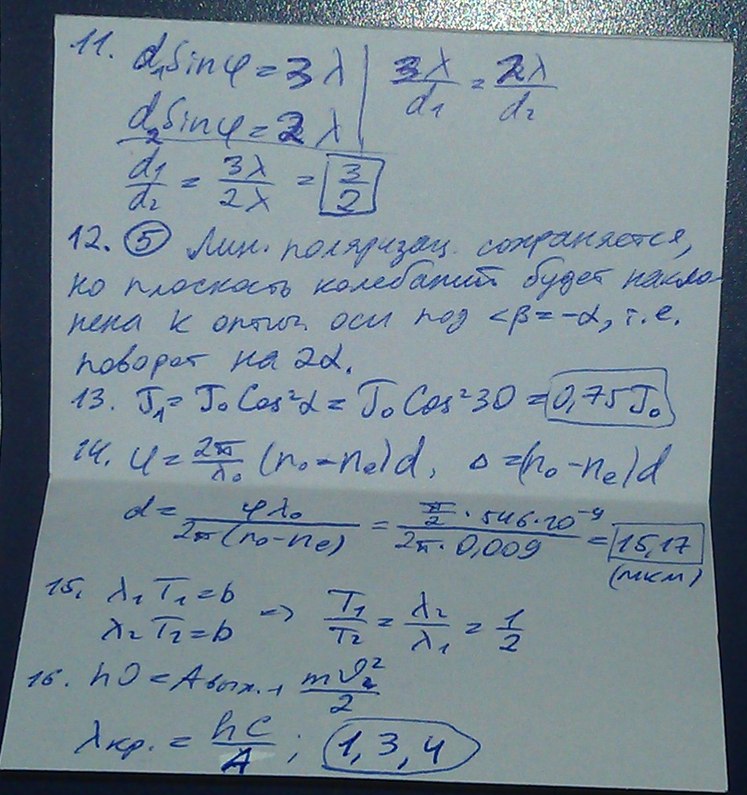 11. d₁Sinφ = 3λ | 3λ/d₁ = 2λ/d₂
d₂Sinφ = 2λ
d₁/d₂ = 3λ/2λ = 3/2
12. 5 Лин. поляризац. сохраняется,
но плоскость колебаний будет накло-
нена к оптич. оси под <β = -α, т.е.
поворот на 2α.
13. J₁ = J₀Cos²α = J₀Cos²30 = 0,75J₀
14. φ = 2π/λ₀ (n₀-nₑ)d, Δ = (n₀-nₑ)d
d = φλ₀/2π(n₀-nₑ) = π/2·546·10⁻⁹/2π·0,009 = 15,17
(мкм)
15. λ₁T₁ = b
λ₂T₂ = b => T₁/T₂ = λ₂/λ₁ = 1/2
16. hϑ = Aвых. + mϑ²/2
λкр. = hc/A ; 1, 3, 4